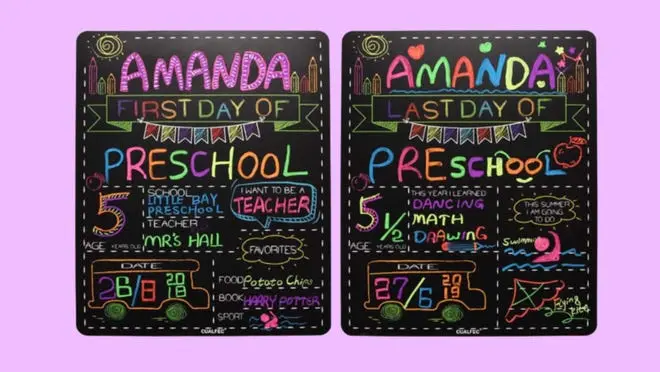 AMANDA
FIRST DAY OF
PRESCHOOL
5
AGE YEARS OLD
SCHOOL
LITTLE BAY
PRESCHOOL
TEACHER
MR'S HALL
I WANT TO BE A
TEACHER
FAVORITES
DATE
26/8 2018
FOOD Potato Chips
BOOK HARRY POTTER
SPORT
CUALFEC
AMANDA
LAST DAY OF
PRESCHOOL
5 1/2
AGE YEARS OLD
THIS YEAR I LEARNED
DANCING
MATH
DRAWING
THIS SUMMER
I AM GOING
TO DO
Swimming
DATE
27/6 2019
Flying
Kite
CUALFEC